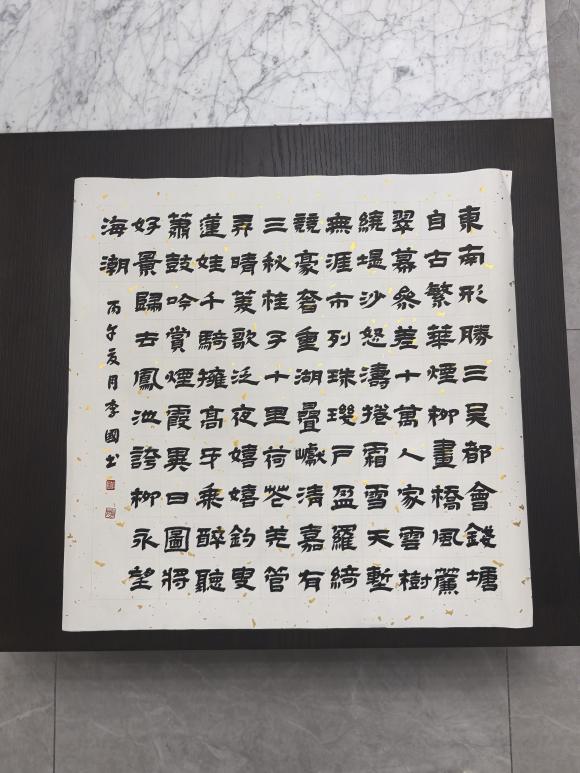 東南形勝三吳都會錢塘
自古繁華煙柳畫橋風簾
翠幕參差十萬人家雲樹
繞堤沙怒濤捲霜雪天塹
無涯市列珠璣戶盈羅綺
競豪奢重湖疊巘清嘉有
三秋桂子十里荷花羌管
弄晴菱歌泛夜嬉嬉釣叟
蓮娃千騎擁高牙乘醉聽
蕭鼓吟賞煙霞異日圖將
好景歸去鳳池誇柳永望
海潮
丙午夏月李國书